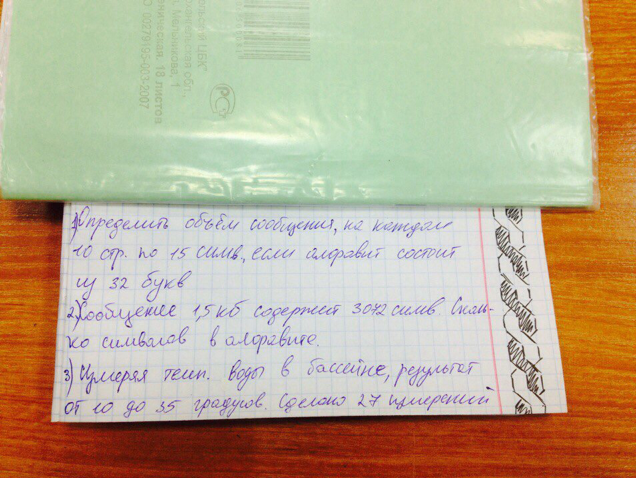 ЦБК"
ская обл.,
1
18 листов
О 00279195-003-2007
РС
1) Определить объём сообщения, на каждом
10 стр. по 15 симв., если алфавит состоит
из 32 букв
2) Сообщение 1,5 кб содержит 3072 симв. Сколь-
ко символов в алфавите.
3) Измеряя темп. воды в бассейне, результат
от 10 до 35 градусов. Сделано 27 измерений